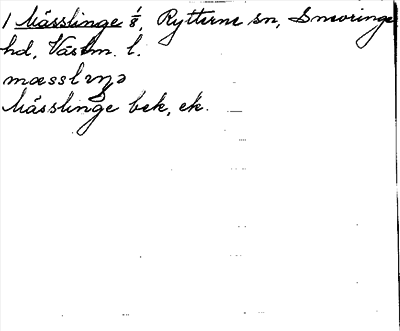 1 Mässlinge ⅛, Rytterne sn, Snevringe
hd, Västm. l.
mæsslıŋə
Mässlinge bek, ek.